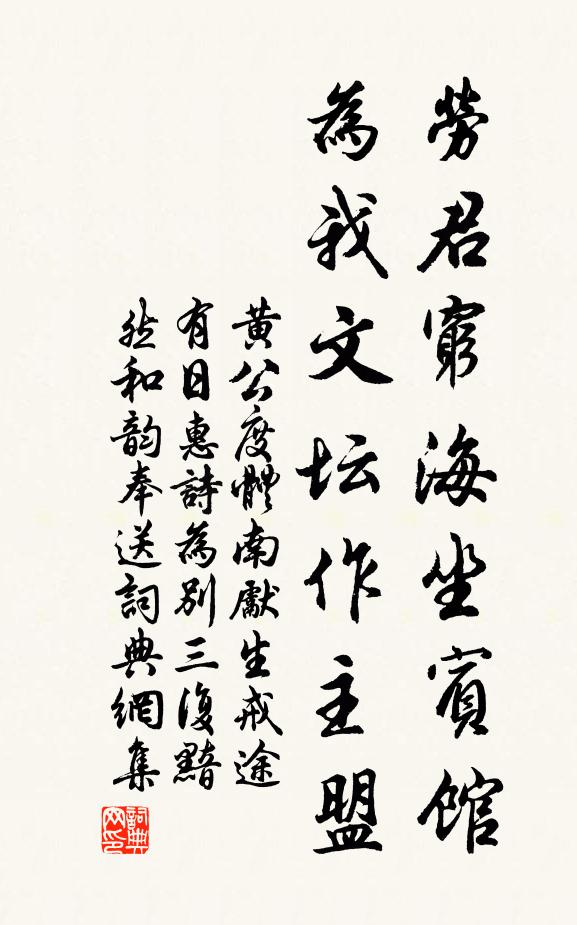 勞君窮海坐賓館
為我文坛作主盟
黃公度體南獻生戒途
有日惠詩為別三復黯
然和韵奉送詞典網集
詞典网印